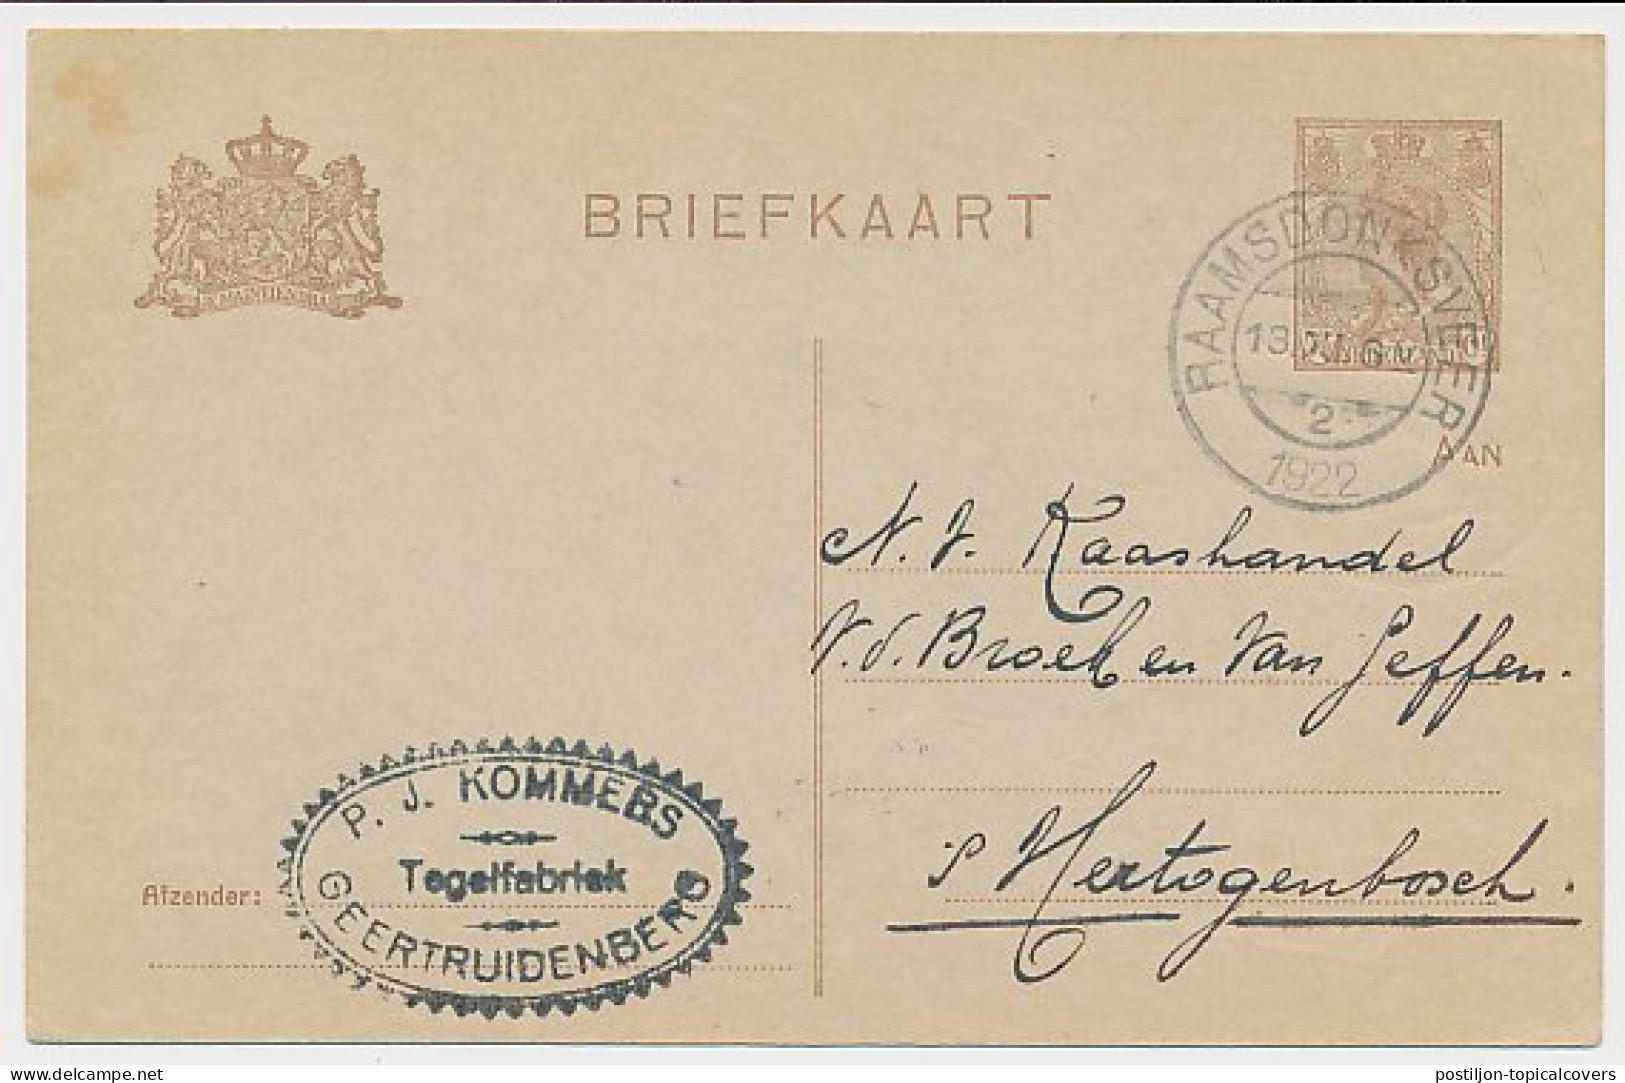 BRIEFKAART
RAAMSDONKSVEER
2
1922
AAN
N. V. Kaashandel
V. d. Broek en Van Geffen.
's Hertogenbosch.
P. J. KOMMERS
Tegelfabriek
GEERTRUIDENBERG
Afzender:
delcampe.net
postiljon-topicalcovers